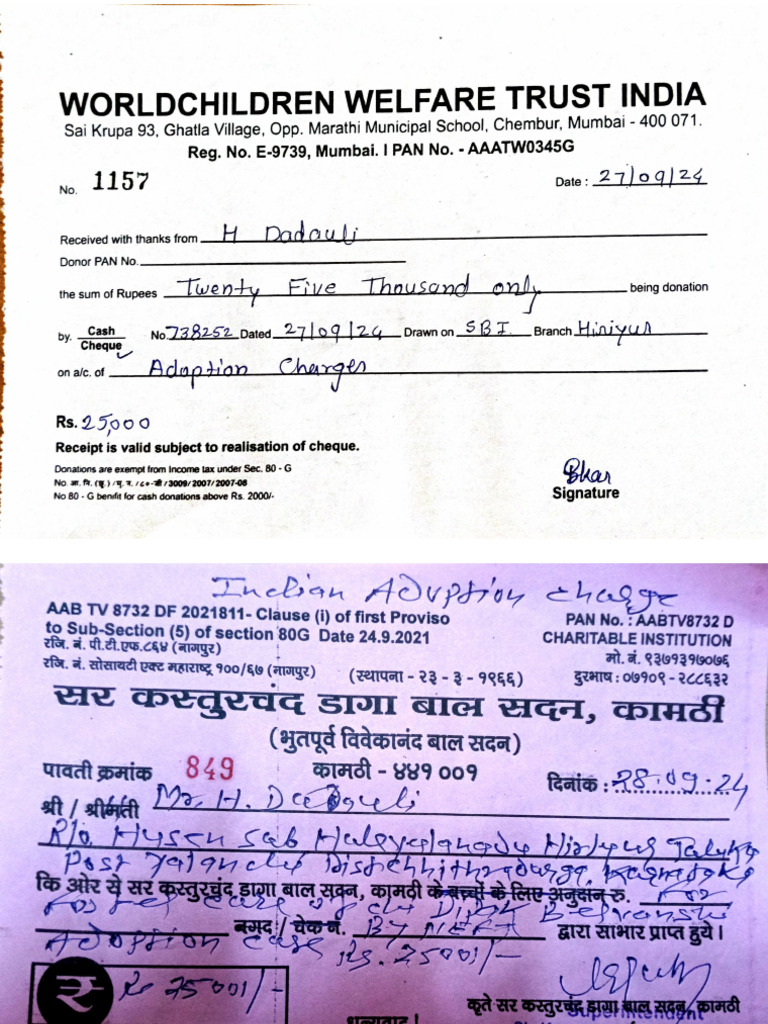 WORLDCHILDREN WELFARE TRUST INDIA
Sai Krupa 93, Ghatla Village, Opp. Marathi Municipal School, Chembur, Mumbai - 400 071.
Reg. No. E-9739, Mumbai. I PAN No. - AAATW0345G
No. 1157 Date : 27/09/24
Received with thanks from H Dadauli
Donor PAN No.
the sum of Rupees Twenty Five Thousand only being donation
by. Cash Cheque No. 738252 Dated 27/09/24 Drawn on SBI Branch Hiriyur
on a/c. of Adoption Charges
Rs. 25,000
Receipt is valid subject to realisation of cheque.
Donations are exempt from Income tax under Sec. 80 - G
No. आ. वि. (छू.) / मु. न. / ८०-जी / 3009/2007/2007-08
No 80 - G benifit for cash donations above Rs. 2000/-
Signature
Indian Adoption charge
AAB TV 8732 DF 2021811- Clause (i) of first Proviso PAN No. : AABTV8732 D
to Sub-Section (5) of section 80G Date 24.9.2021 CHARITABLE INSTITUTION
रजि. नं. पी.टी.एफ.८६४ (नागपुर) मो. नं. ९३७१३१७०७६
रजि. नं. सोसायटी एक्ट महाराष्ट्र १००/६७ (नागपुर) (स्थापना - २३ - ३ - १९६६) दुरभाष : ०७१०९ - २८८६३२
सर कस्तुरचंद डागा बाल सदन, कामठी
(भुतपूर्व विवेकानंद बाल सदन)
पावती क्रमांक 849 कामठी - ४४१ ००१ दिनांक : 28.09.24
श्री / श्रीमती Mr. H. Dadauli
R/o Hussen Sab Hiriyur Taluka
Post Dist
कि ओर से सर कस्तुरचंद डागा बाल सदन, कामठी के बच्चों के लिए अनुदान रु. For
Foster care of
नगद / चेक नं. By NEFT द्वारा साभार प्राप्त हुये ।
Adoption case Rs. 25001/-
Rs 25001/-
कृते सर कस्तुरचंद डागा बाल सदन, कामठी
Superintendent
धन्यवाद !